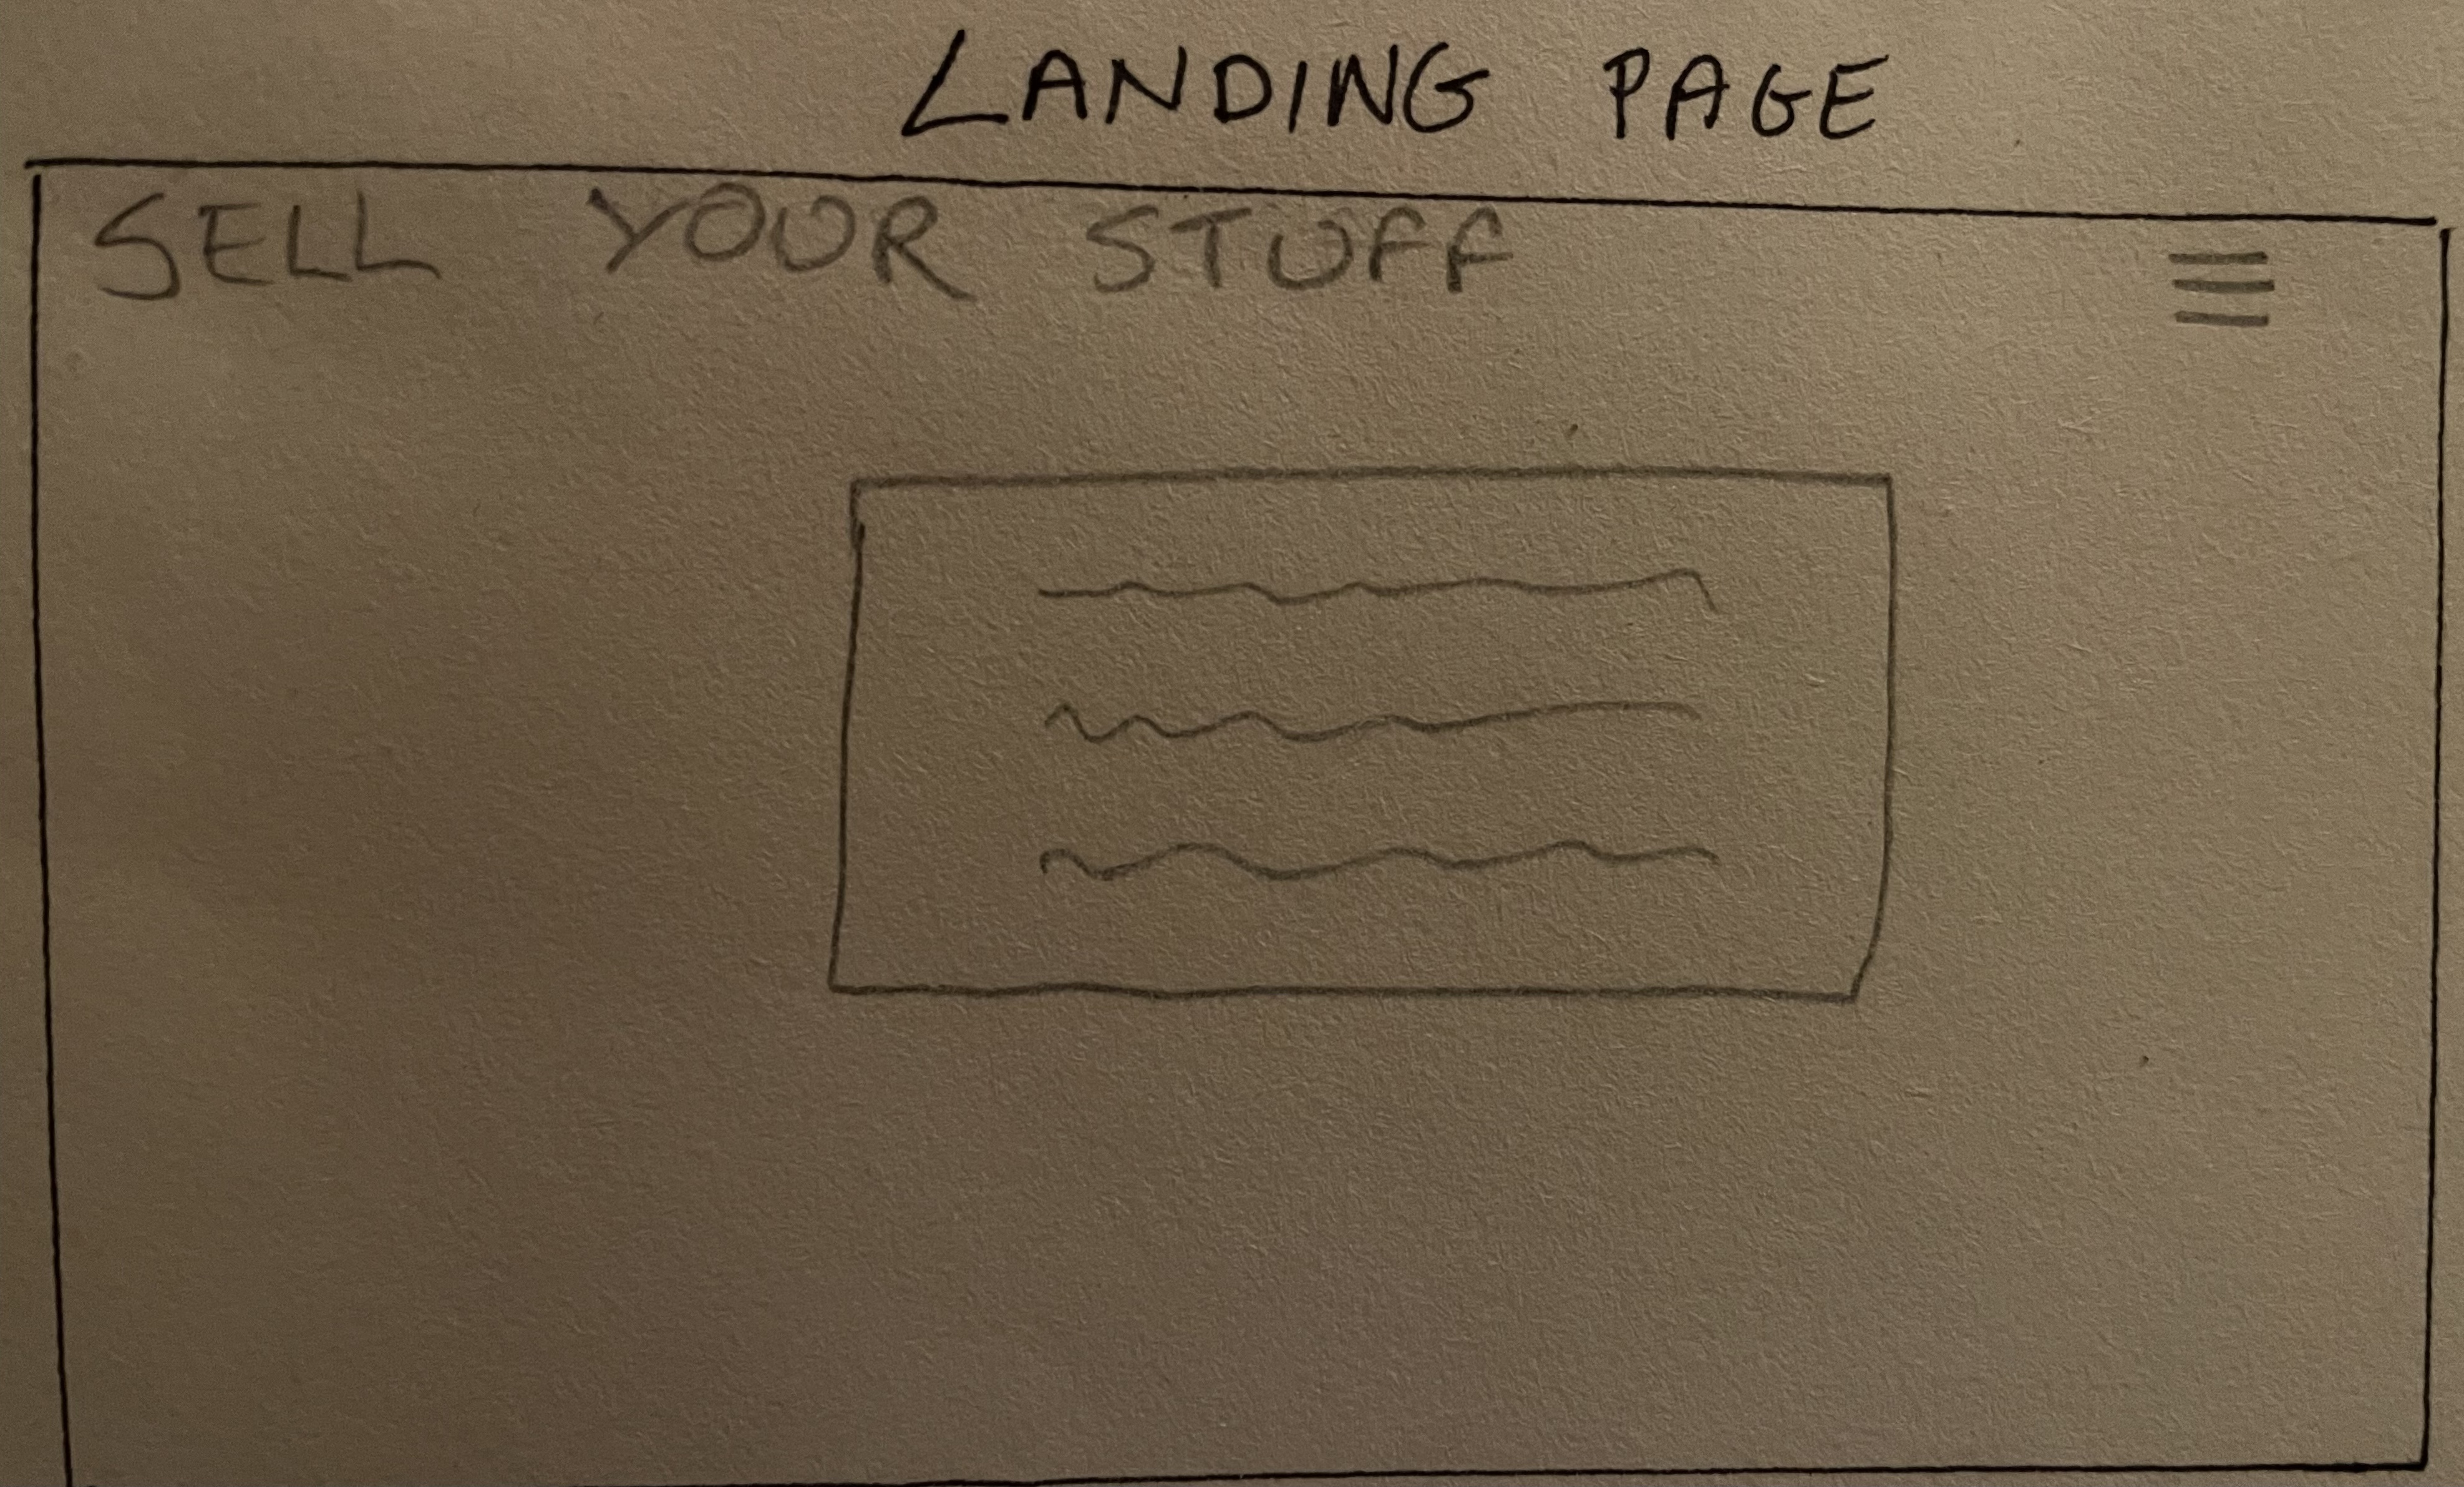 LANDING PAGE
SELL YOUR STUFF